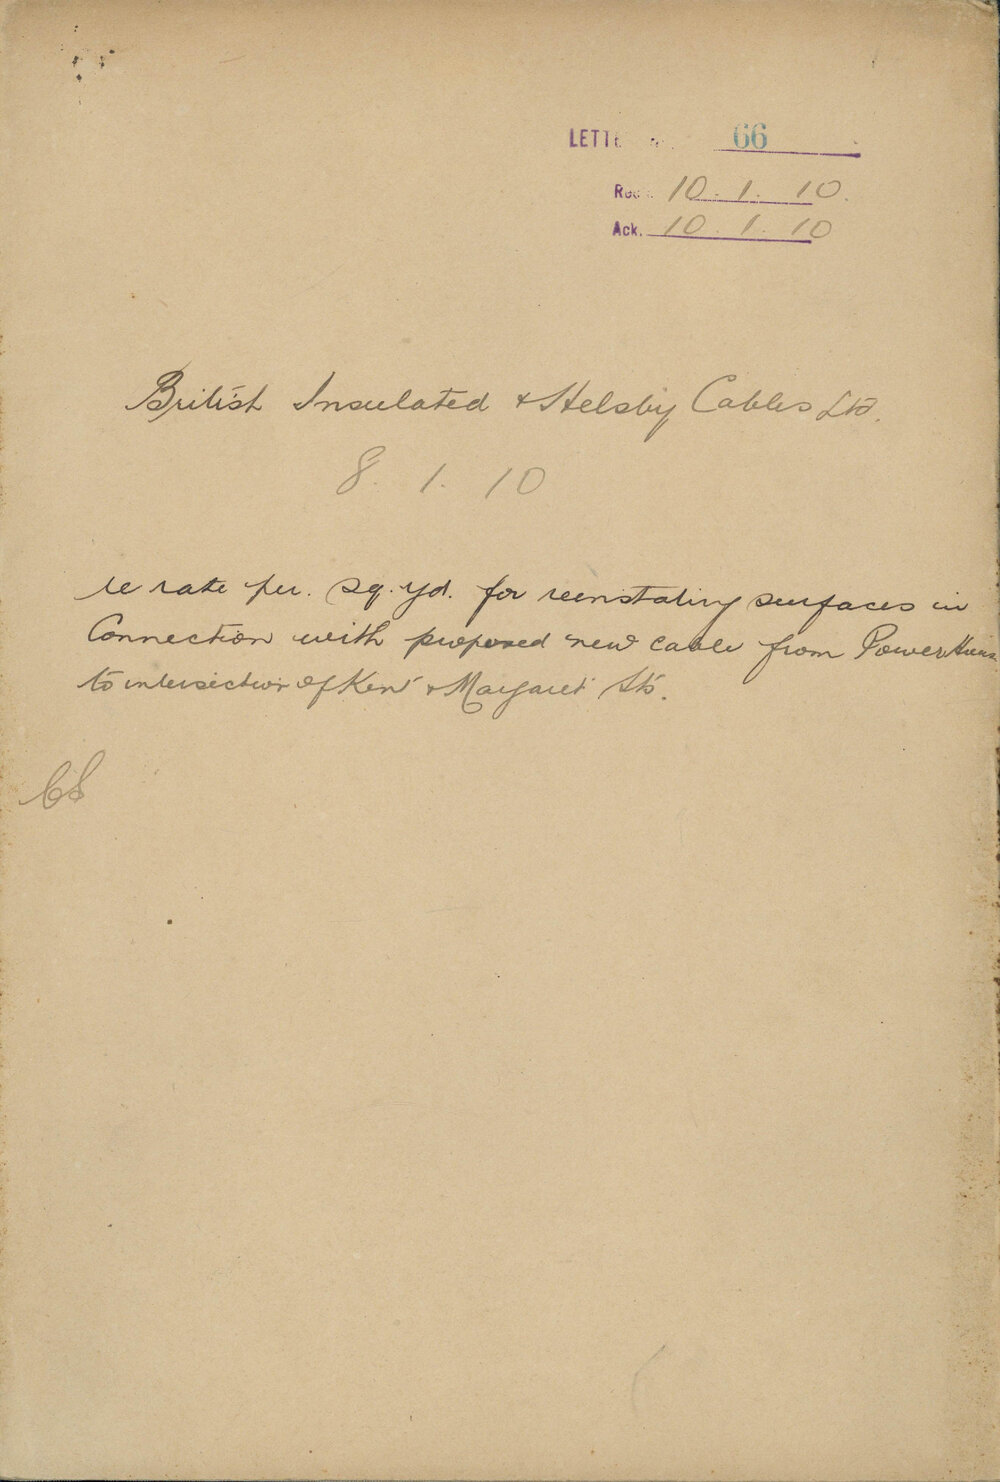 LETTE 66
Rec. 10.1.10.
Ack. 10.1.10
British Insulated & Helsby Cables Ltd.
8.1.10
re rate per. sq. yd. for reinstating surfaces in
Connection with proposed new cable from Power House
to intersection of Kent & Margaret Sts.